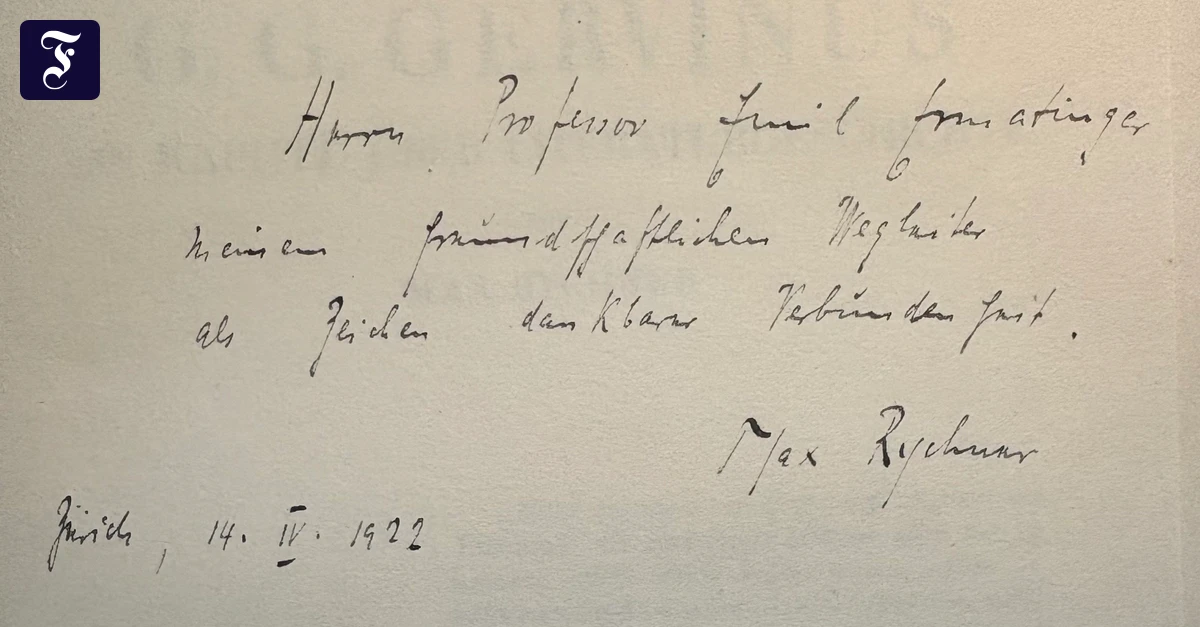 F
Herrn Professor Emil Ermatinger
meinem freundschaftlichen Wegleiter
als Zeichen dankbarer Verbundenheit.
Max Rychner
Zürich, 14. IV. 1922